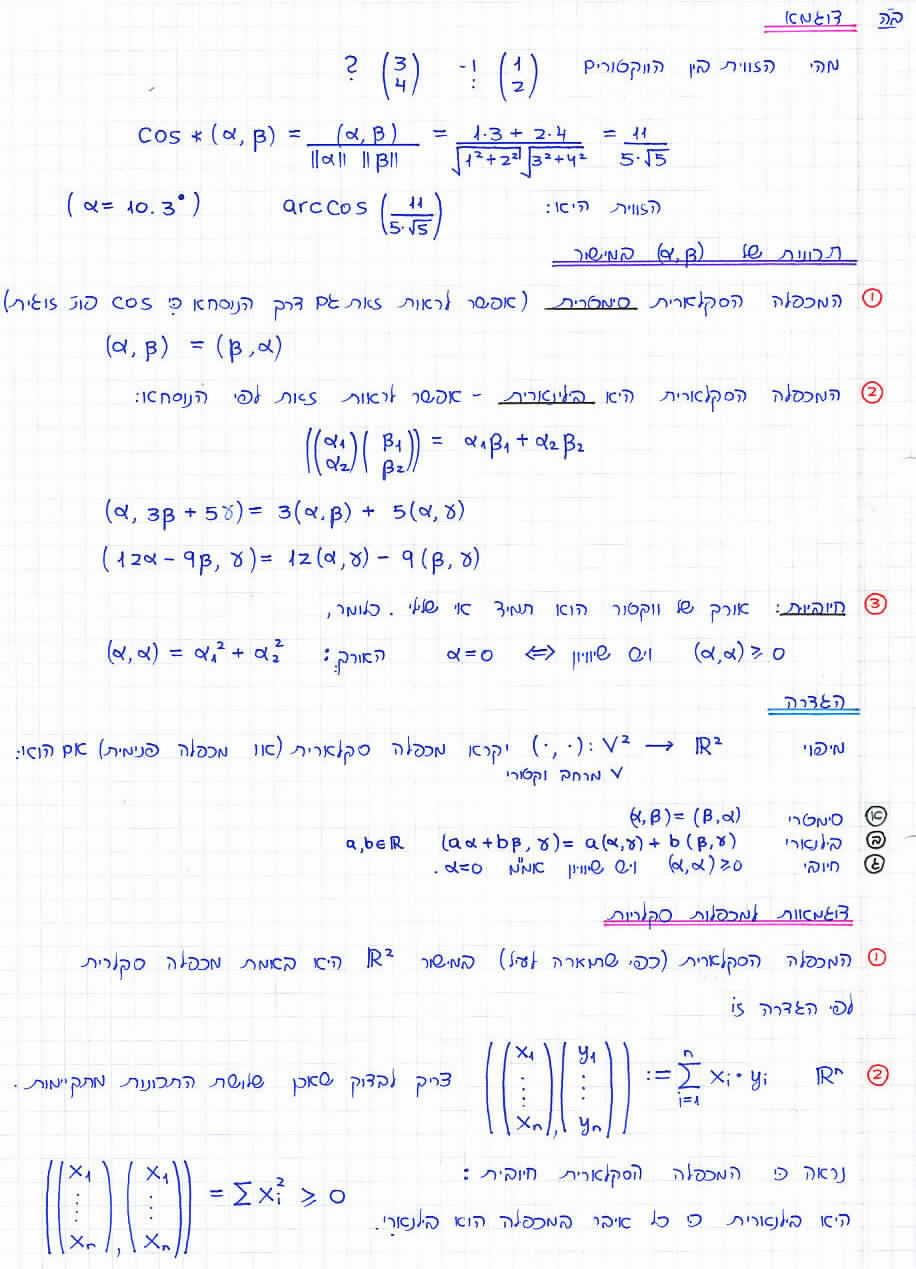 בה דוגמא
מהי הזווית בין הווקטורים (1 2) ו- (3 4) ?
cos ∢(α, β) = (α, β) / ||α|| ||β|| = 1·3 + 2·4 / √1²+2² √3²+4² = 11 / 5·√5
הזווית היא: arccos (11 / 5·√5) (α = 10.3°)
תכונות של (α, β) במישור
① המכפלה הסקלארית סימטרית (אפשר לראות זאת גם דרך הנוסחא כי cos פונ' זוגית)
(α, β) = (β, α)
② המכפלה הסקלארית היא בילינארית - אפשר לראות זאת לפי הנוסחא:
((α₁ α₂)(β₁ β₂)) = α₁β₁ + α₂β₂
(α, 3β + 5γ) = 3(α, β) + 5(α, γ)
(12α - 9β, γ) = 12(α, γ) - 9(β, γ)
③ חיוביות: אורק של ווקטור הוא תמיד אי שלילי. כלומר,
(α, α) ≥ 0 ויש שיוויון ⟺ α = 0 האורך: (α, α) = α₁² + α₂²
הגדרה
מיפוי (·, ·): V² → ℝ² יקרא מכפלה סקלארית (או מכפלה פנימית) אם הוא:
V מרחב וקטורי
א סימטרי (α, β) = (β, α)
ב בילנארי (aα + bβ, γ) = a(α, γ) + b(β, γ) a, b ∈ ℝ
ג חיובי (α, α) ≥ 0 ויש שיוויון אמ"מ α = 0.
דוגמאות למכפלות סקלריות
① המכפלה הסקלארית (כפי שתוארה לעיל) במישור ℝ² היא באמת מכפלה סקלרית
לפי הגדרה is
② ℝⁿ ((x₁ ⋮ xₙ), (y₁ ⋮ yₙ)) := Σᵢ₌₁ⁿ xᵢ · yᵢ צריק לבדוק שאכן שלושת התכונות מתקיימות.
נראה כי המכפלה הסקלארית חיובית: ((x₁ ⋮ xₙ), (x₁ ⋮ xₙ)) = Σxᵢ² ≥ 0
היא בילנארית כי כל איבר במכפלה הוא בילנארי.